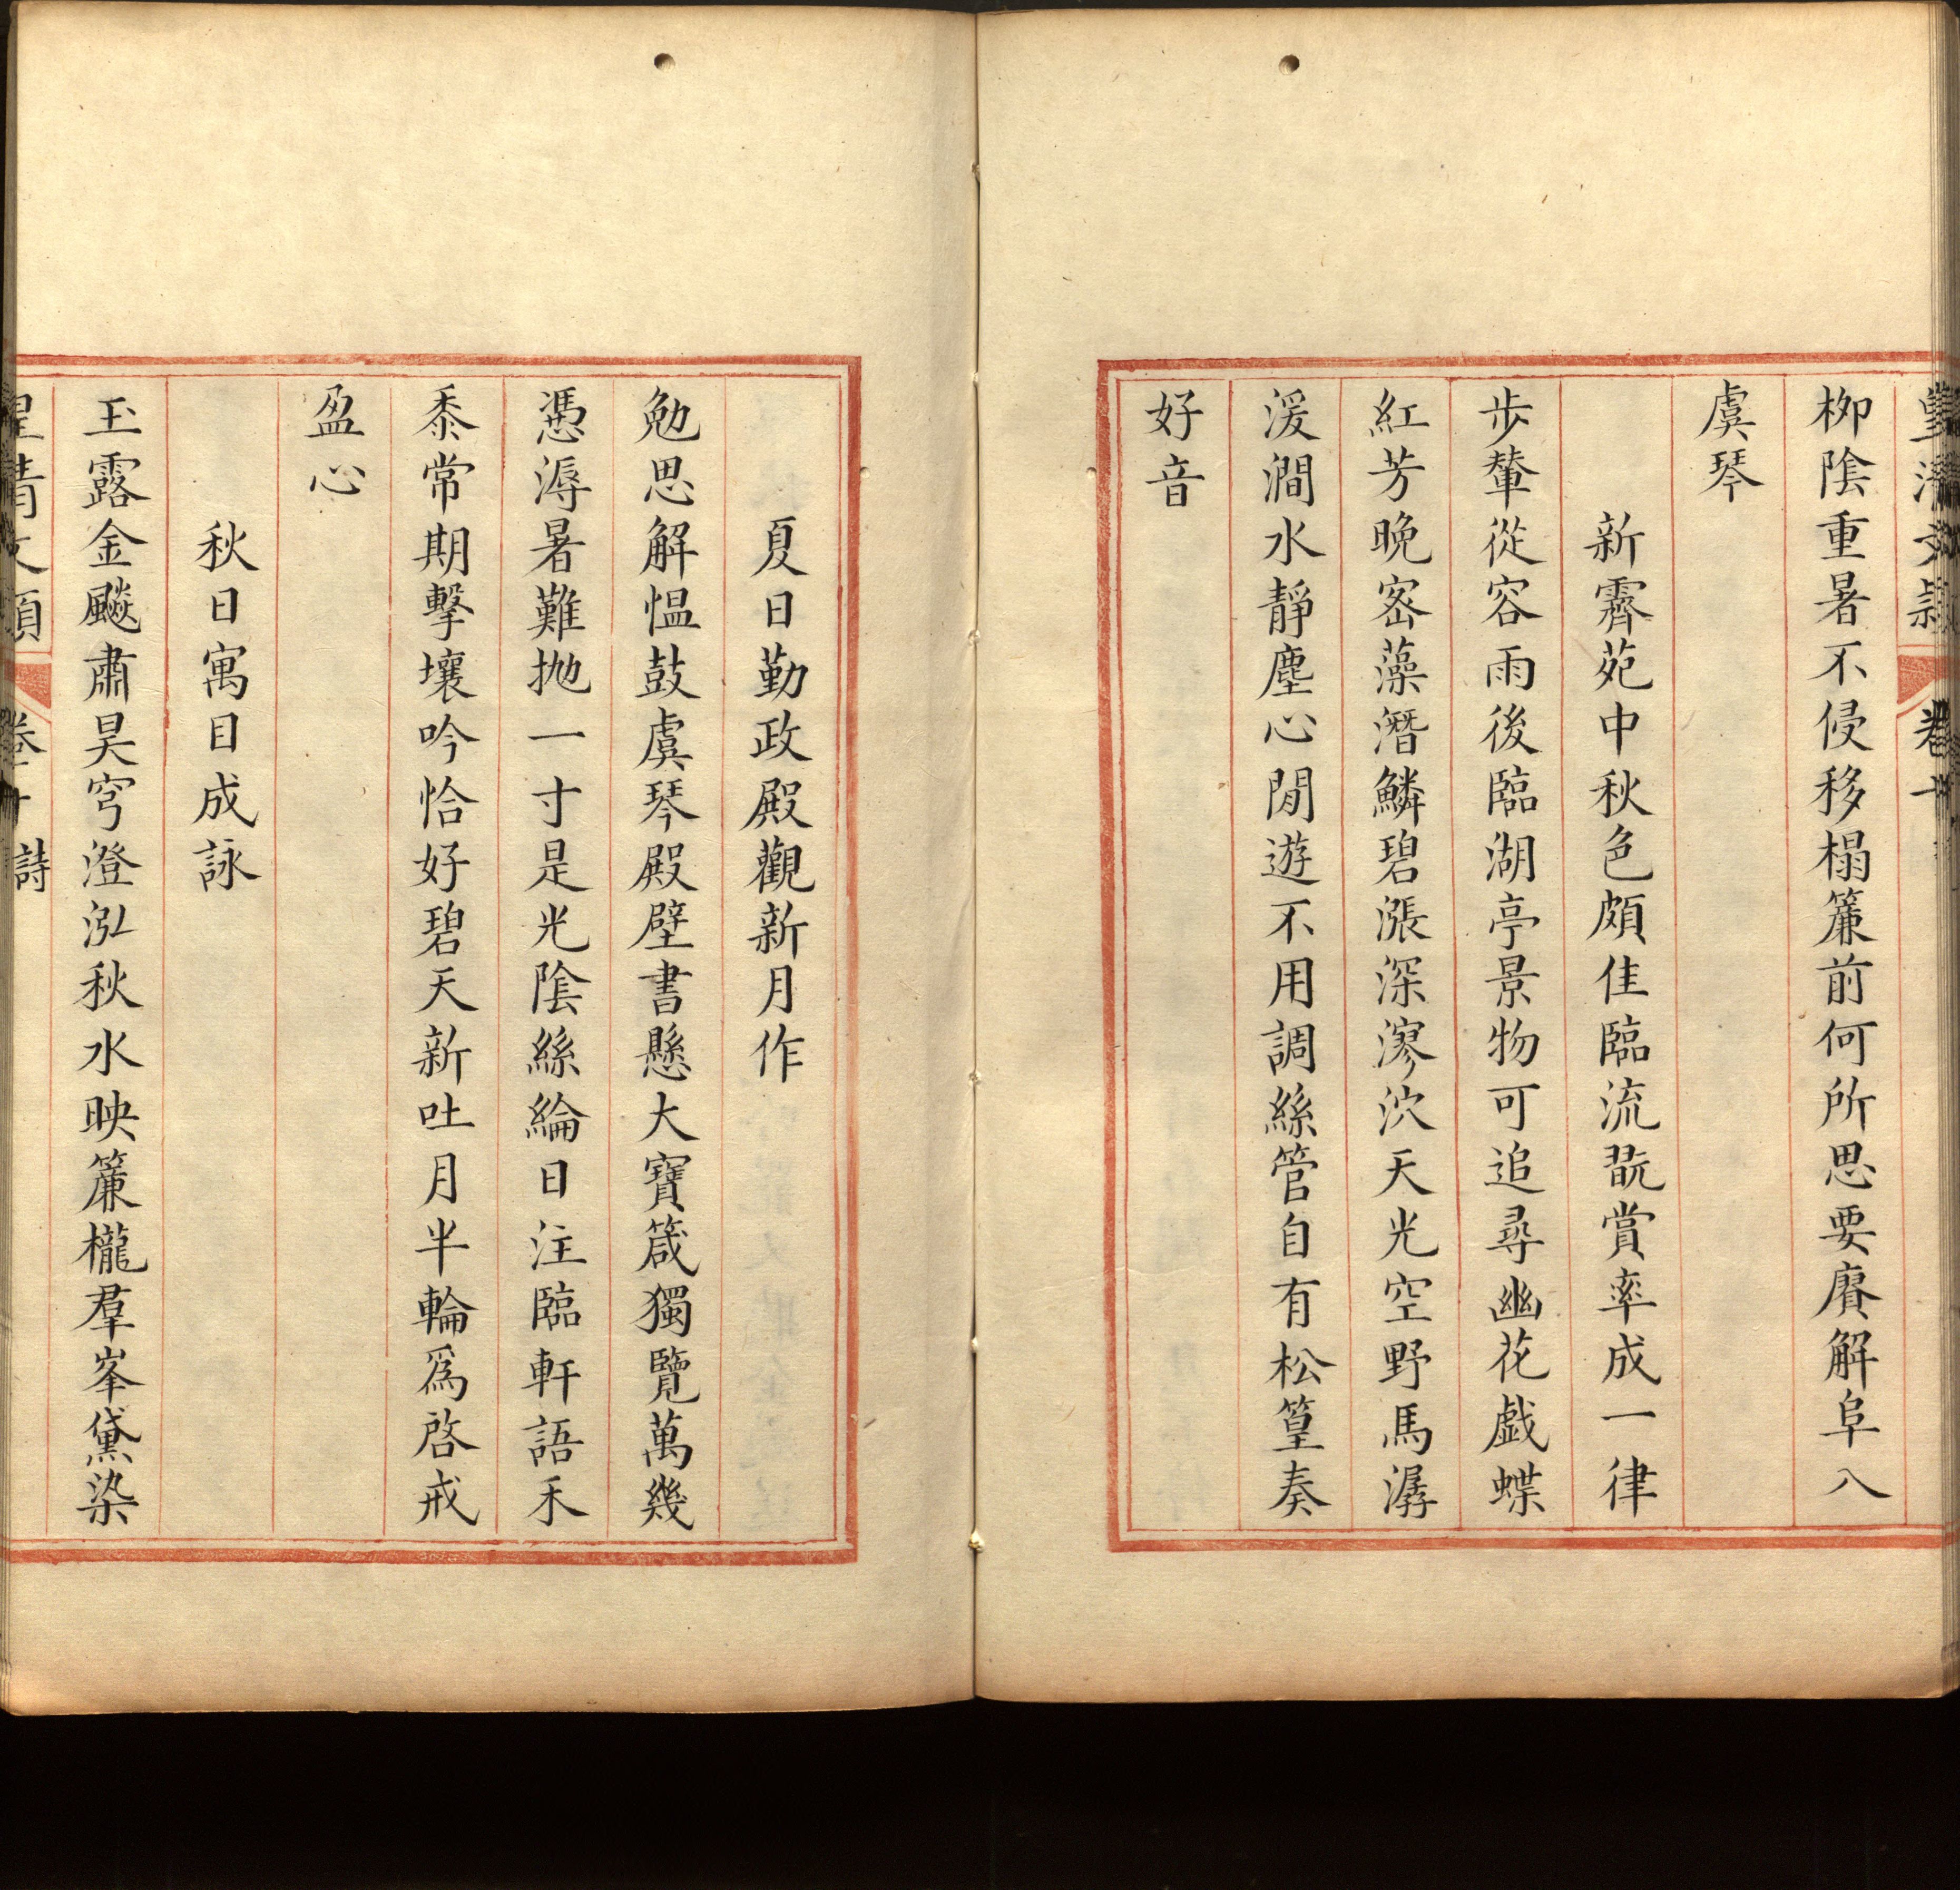 柳陰重暑不侵移榻簾前何所思要賡解阜八
虞琴
新霽苑中秋色頗佳臨流翫賞率成一律
步輦從容雨後臨湖亭景物可追尋幽花戲蝶
紅芳晚密藻潛鱗碧漲深漻泬天光空野馬潺
湲澗水靜塵心閒遊不用調絲管自有松篁奏
好音
夏日勤政殿觀新月作
勉思解慍鼓虞琴殿壁書懸大寶箴獨覽萬幾
憑溽暑難拋一寸是光陰絲綸日注臨軒語禾
黍常期擊壤吟恰好碧天新吐月半輪爲啓戒
盈心
秋日寓目成詠
玉露金飈肅昊穹澄泓秋水映簾櫳羣峯黛染
皇清文穎 卷十 詩